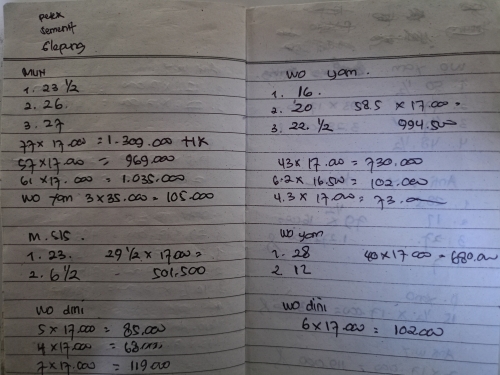 Pelek
Sement
Glapung
MUH
1. 23 1/2
2. 26.
3. 27
77 x 17.000 = 1.309.000 + 1K
57 x 17.000 = 969.000
61 x 17.000 = 1.035.000
WO yam 3 x 35.000 = 105.000
M. SIS.
1. 23. 29 1/2 x 17.000 =
2. 6 1/2 501.500
WO dini
5 x 17.000 = 85.000
4 x 17.000 = 68.000
7 x 17.000 = 119.000
WO yam.
1. 16.
2. 20 585 x 17.000 =
3. 22. 1/2 994.500
43 x 17.000 = 730.000
6.2 x 16.500 = 102.000
4.3 x 17.000 = 73.
WO yam
1. 28 40 x 17.000 = 680.000
2 12
WO dini
6 x 17.000 = 102000